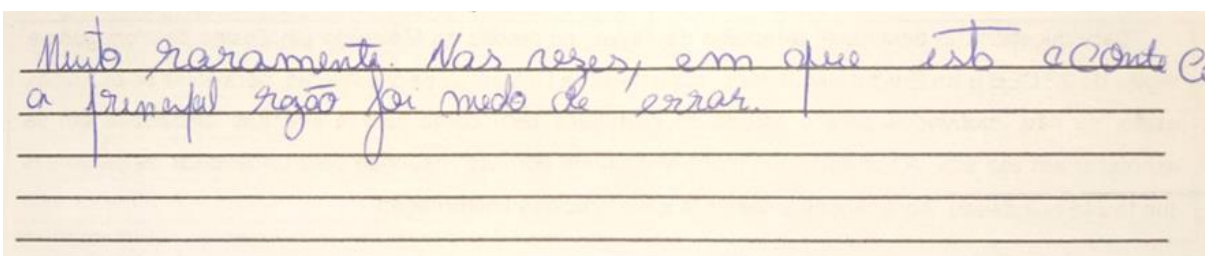 Muito raramente. Nas vezes, em que isto acontece
a principal razão foi medo de errar.